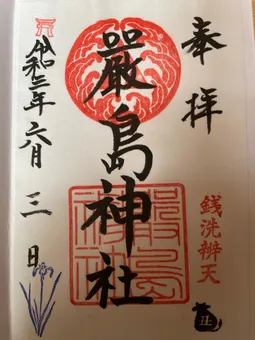 奉拝
嚴島神社
銭洗辨天
令和三年六月三日
丑
嚴島神社